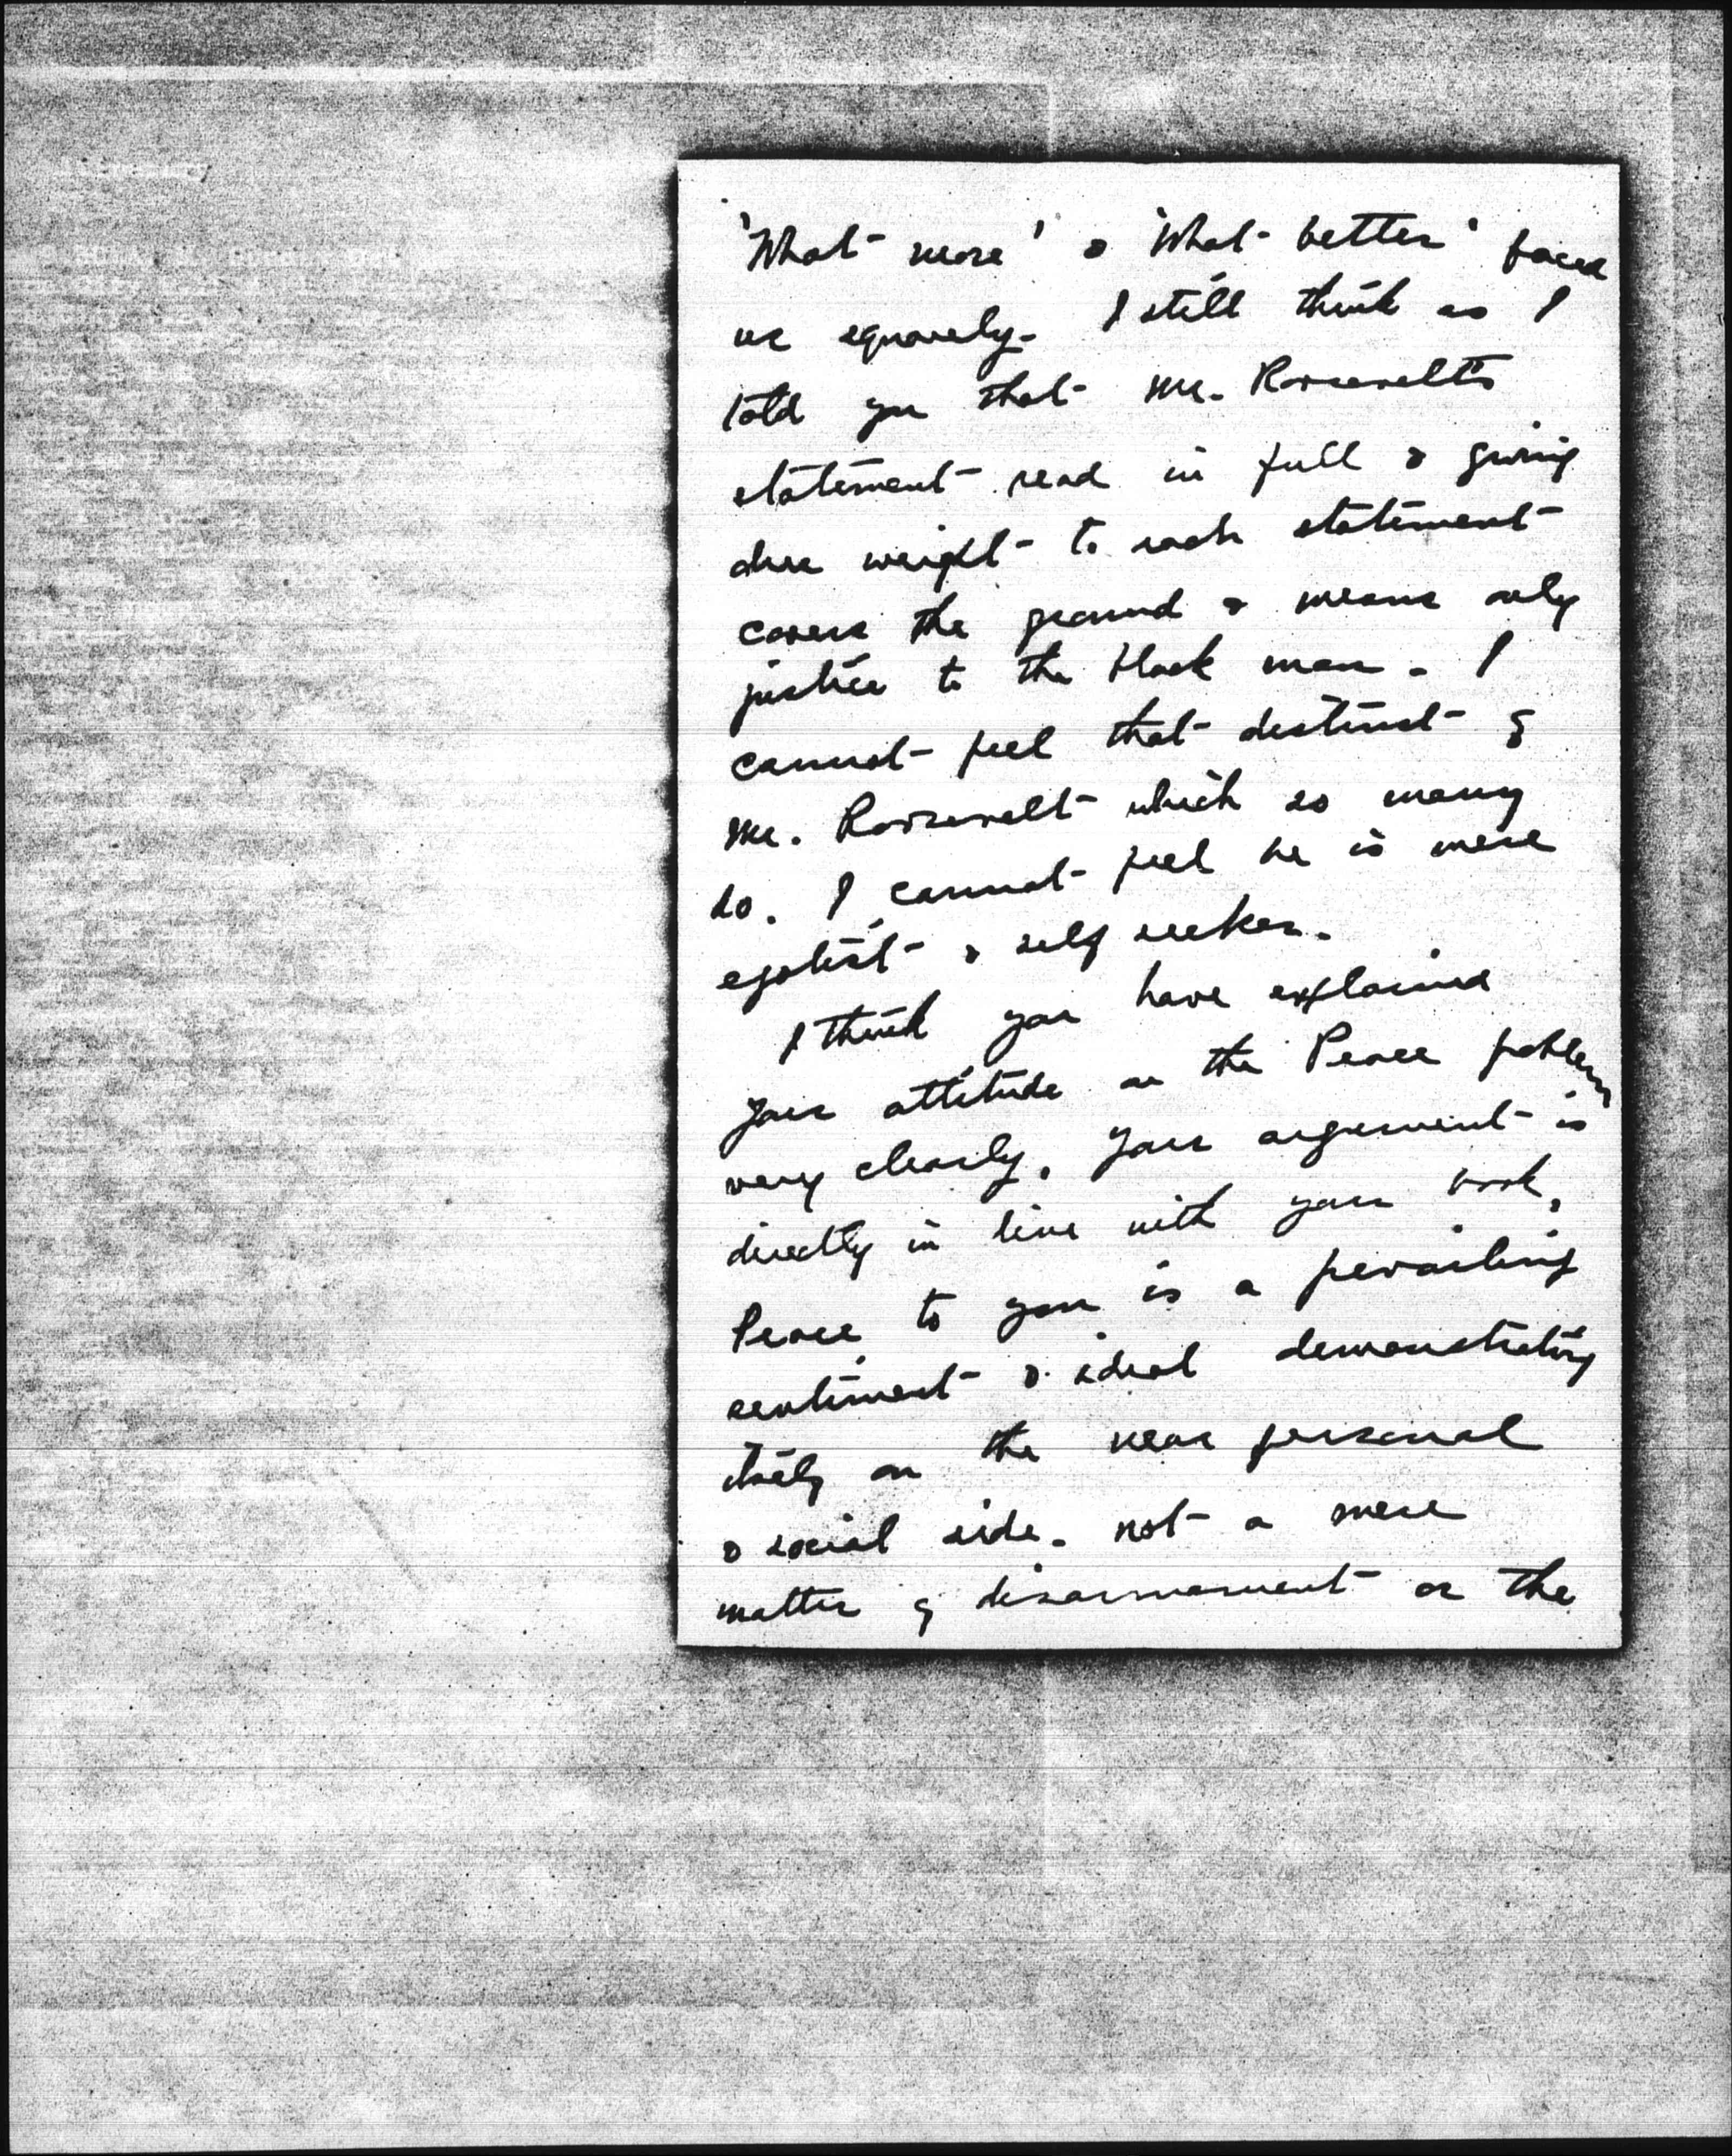 'What more' & 'What better' faced
us squarely. I still think as I
told you that Mr. Roosevelt's
statement read in full & giving
due weight to each statement
covers the ground & means only
justice to the black man. I
cannot feel that distrust of
Mr. Roosevelt which so many
do. I cannot feel he is mere
egotist & self seeker.
I think you have explained
your attitude on the Peace problem
very clearly. Your argument is
directly in line with your book,
Peace to you is a prevailing
sentiment & ideal demonstrating
itself on the near personal
& social side. not a mere
matter of disarmament or the